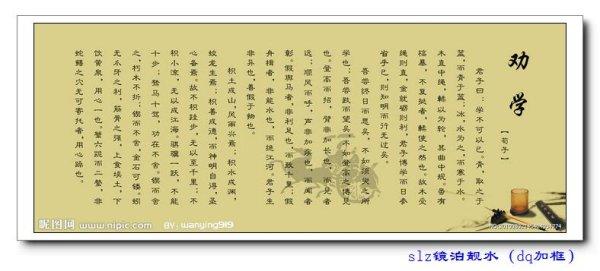 劝学
【荀子】
君子曰：学不可以已。青，取之于
蓝，而青于蓝；冰，水为之，而寒于水。
木直中绳，輮以为轮，其曲中规。虽有
槁暴，不复挺者，輮使之然也。故木受
绳则直，金就砺则利，君子博学而日参
省乎己，则知明而行无过矣。
吾尝终日而思矣，不如须臾之所
学也；吾尝跂而望矣，不如登高之博见
也。登高而招，臂非加长也，而见者
远；顺风而呼，声非加疾也，而闻者
彰。假舆马者，非利足也，而致千里；假
舟楫者，非能水也，而绝江河。君子生
非异也，善假于物也。
积土成山，风雨兴焉；积水成渊，
蛟龙生焉；积善成德，而神明自得，圣
心备焉。故不积跬步，无以至千里；不
积小流，无以成江海。骐骥一跃，不能
十步；驽马十驾，功在不舍。锲而舍
之，朽木不折；锲而不舍，金石可镂。蚓
无爪牙之利，筋骨之强，上食埃土，下
饮黄泉，用心一也。蟹六跪而二螯，非
蛇鳝之穴无可寄托者，用心躁也。
昵图网
www.nipic.com
BY: wanying919
slz镜泊靓水（dq加框）